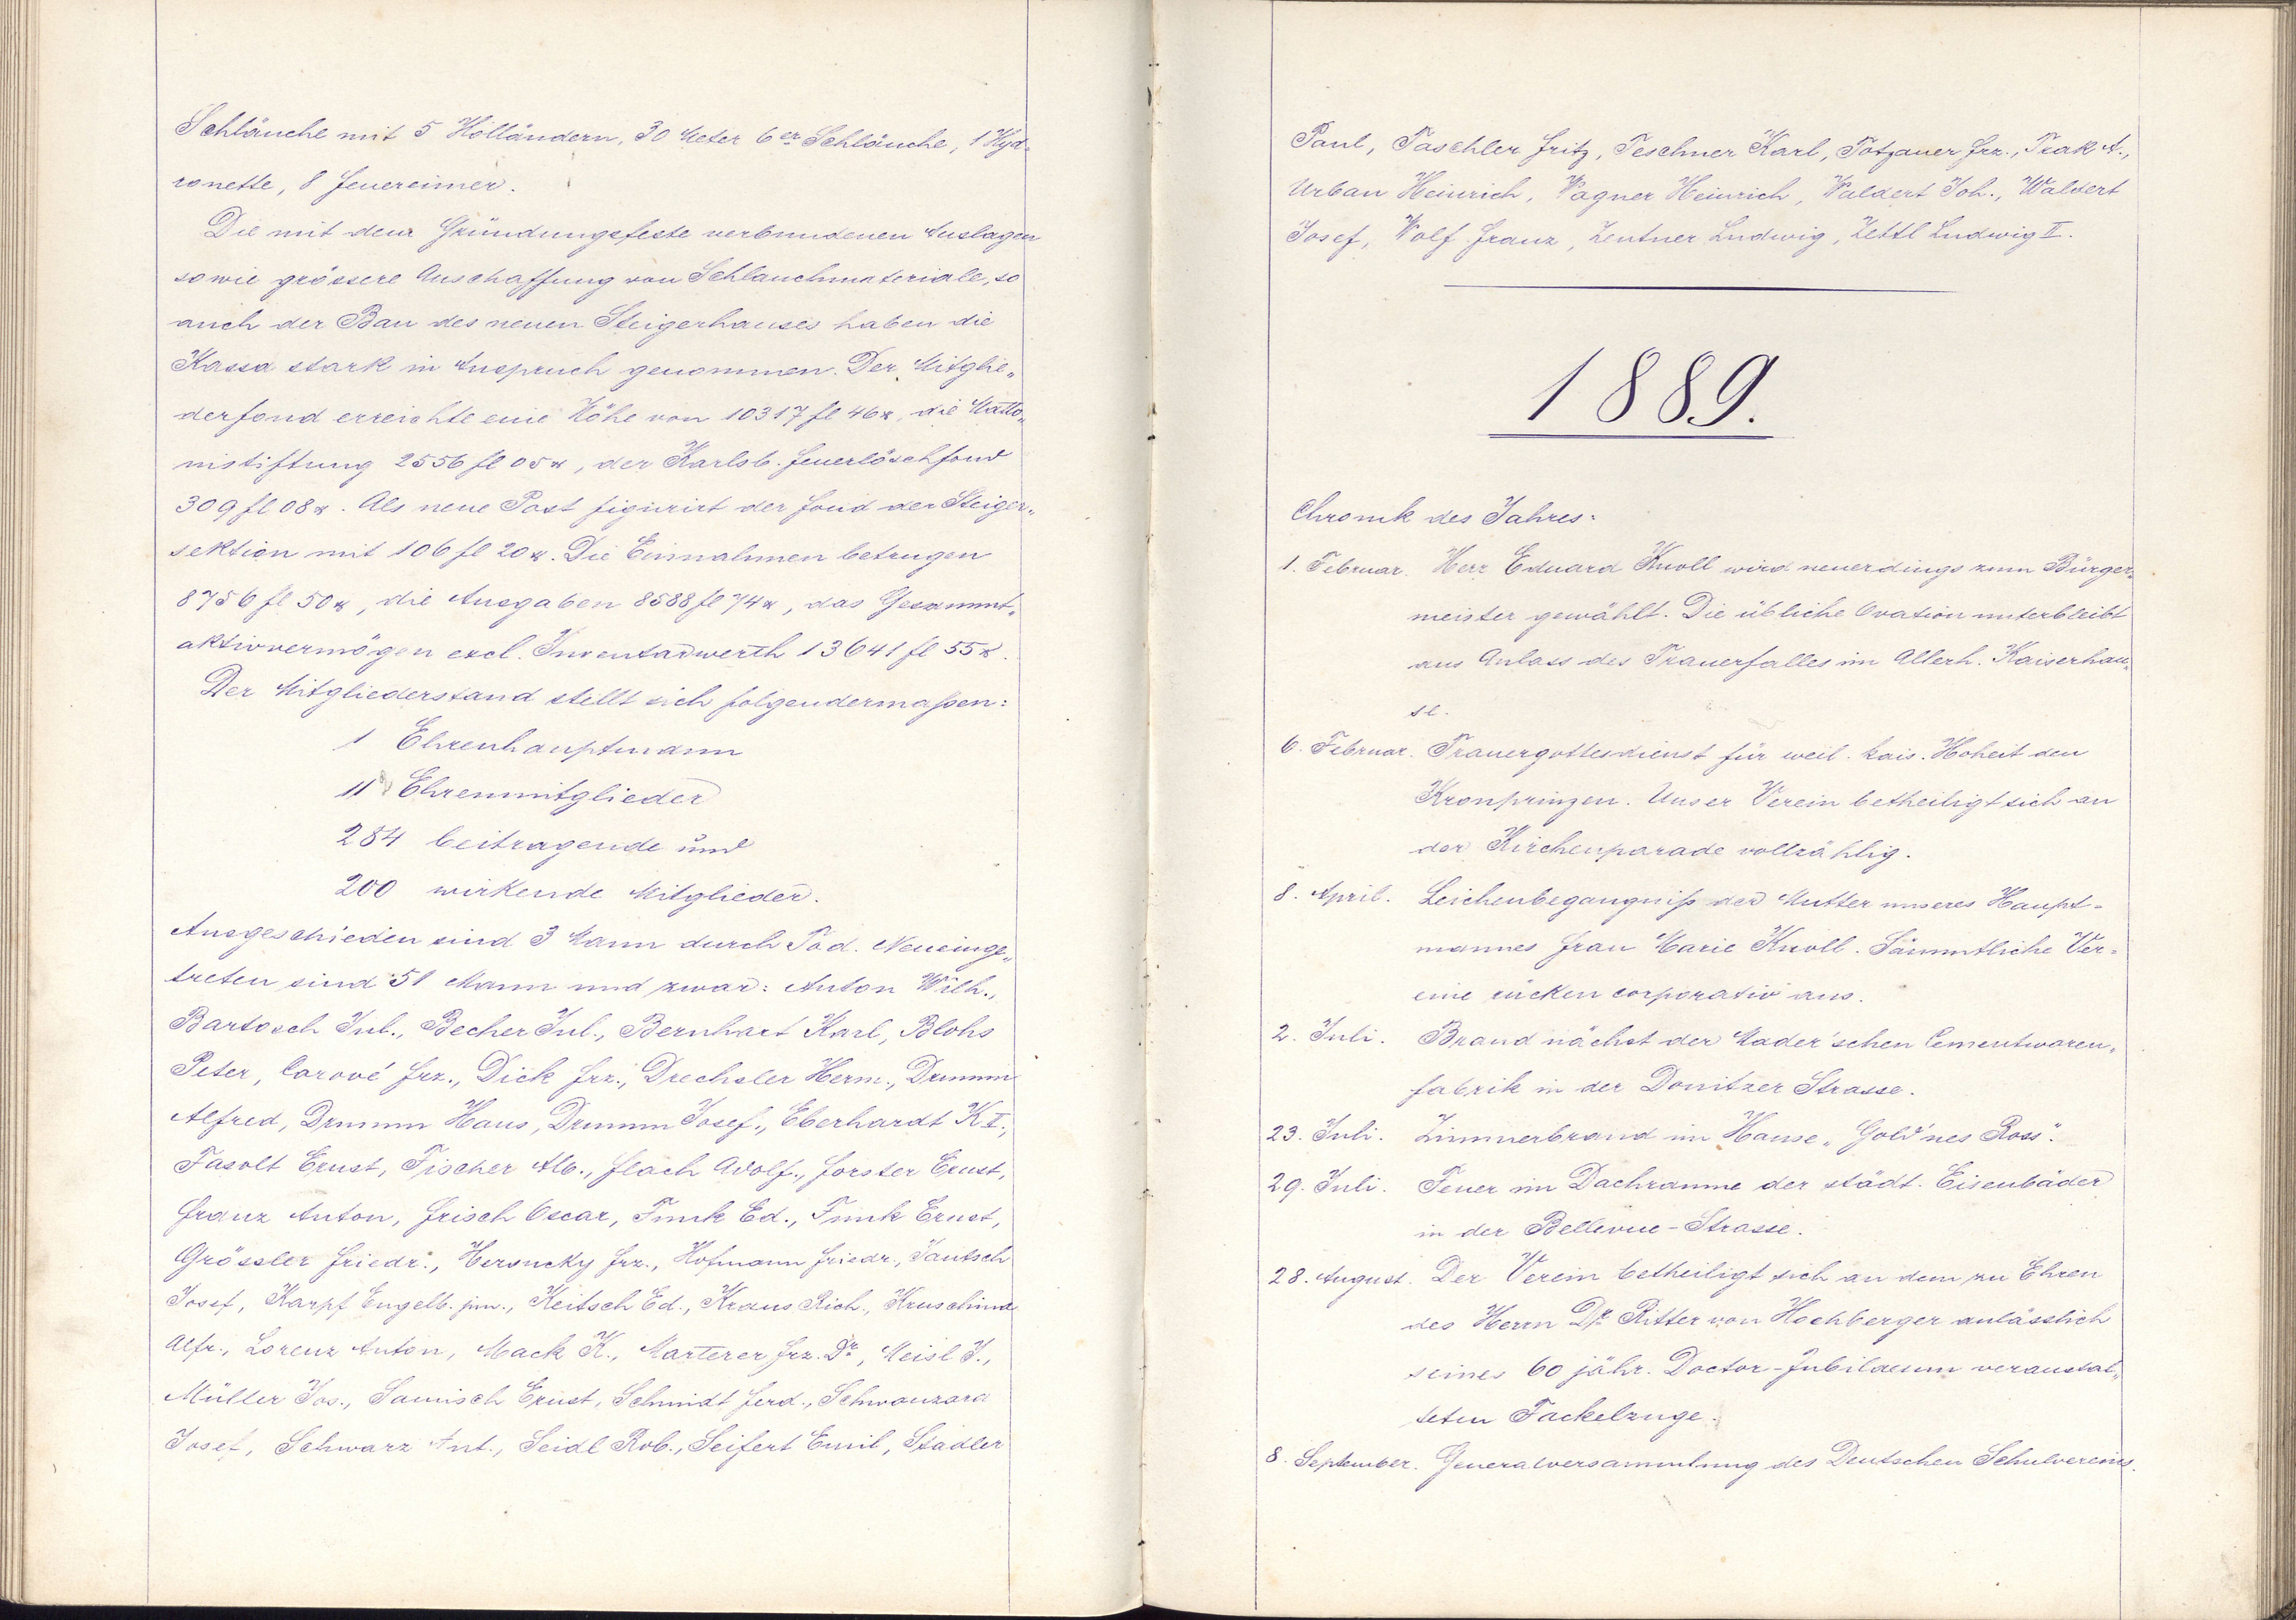 Schläuche mit 5 Holländern, 30 Meter 6er Schläuche, 1 Hyd-
ronette, 8 Feuereimer.
Die mit dem Gründungsfeste verbundenen Auslagen
sowie grössere Anschaffung von Schlauchmateriale, so
auch der Bau des neuen Steigerhauses haben die
Kassa stark in Anspruch genommen. Der Mitglie„
derfond erreichte eine Höhe von 10317 fl 46 x, die Matto„
nistiftung 2556 fl 05 x, der Karlsb. Feuerlöschfond
309 fl 08 x. Als neue Post figurirt der Fond der Steiger„
sektion mit 106 fl 20 x. Die Einnahmen betrugen
8756 fl 50 x, die Ausgaben 8588 fl 74 x, das Gesammt„
aktivvermögen excl. Inventarwerth 13641 fl 55 x.
Der Mitgliederstand stellt sich folgendermaßen:
1 Ehrenhauptmann
11 Ehrenmitglieder
284 beitragende und
200 wirkende Mitglieder.
Ausgeschieden sind 3 Mann durch Tod. Neueinge„
treten sind 51 Mann und zwar: Anton Wilh.,
Bartosch Jul., Becher Jul., Bernhart Karl, Blohs
Peter, Carové Frz., Dick Frz., Drechsler Herm., Drumm
Alfred, Drumm Hans, Drumm Josef., Eberhardt K I.,
Fasolt Ernst, Fischer Alb., Flach Adolf., Forster Ernst,
Franz Anton, Frisch Oscar, Funk Ed., Funk Ernst,
Grössler Friedr., Heroucky Frz., Hofmann Friedr., Jautsch
Josef, Karpf Engelb. jun., Keitsch Ed., Kraus Rich., Kruschina
Alfr., Lorenz Anton, Mack K., Marterer Frz. Dr., Meisl J.,
Müller Jos., Samisch Ernst, Schmidt Ferd., Schwanzara
Josef, Schwarz Ant., Seidl Rob., Seifert Emil, Stadler
Paul, Taschler Fritz, Teschner Karl, Totzauer Frz., Trak A.,
Urban Heinrich, Wagner Heinrich, Waldert Joh., Waldert
Josef, Wolf Franz, Zentner Ludwig, Zettl Ludwig II.
1889.
Chronik des Jahres:
1. Februar. Herr Eduard Knoll wird neuerdings zum Bürger„
meister gewählt. Die übliche Ovation unterbleibt
aus Anlass des Trauerfalles im Allerh. Kaiserhau„
se.
6. Februar. Trauergottesdienst für weil. kais. Hoheit den
Kronprinzen. Unser Verein betheiligt sich an
der Kirchenparade vollzählig.
8. April. Leichenbegängniß der Mutter unseres Haupt-
mannes Frau Marie Knoll. Sämmtliche Ver-
eine rücken corporativ aus.
2. Juli. Brand nächst der Mader'schen Cementwaren„
fabrik in der Donitzer Strasse.
23. Juli. Zimmerbrand im Hause „Gold'nes Ross".
29. Juli. Feuer im Dachraume der städt. Eisenbäder
in der Bellevue-Strasse.
28. August. Der Verein betheiligt sich an dem zu Ehren
des Herrn Dr. Ritter von Hochberger anlässlich
seines 60 jähr. Doctor-Jubilaeum veranstal„
teten Fackelzuge.
8. September. Generalversammlung des Deutschen Schulvereins.